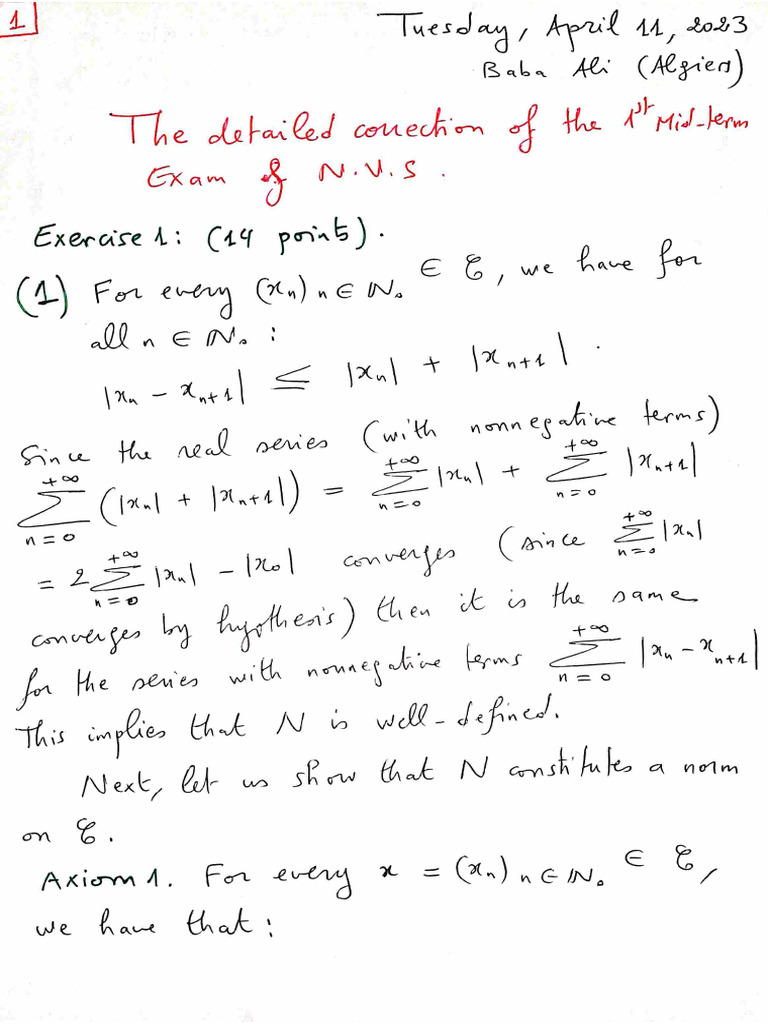 1
Tuesday, April 11, 2023
Baba Ali (Algiers)
The detailed correction of the 1st Mid-term
Exam of N.V.S.
Exercise 1: (14 points).
(1) For every (xₙ)ₙ∈ℕ₀ ∈ ℰ, we have for
all n ∈ ℕ₀ :
|xₙ − xₙ₊₁| ≤ |xₙ| + |xₙ₊₁| .
Since the real series (with nonnegative terms)
∑_{n=0}^{+∞} (|xₙ| + |xₙ₊₁|) = ∑_{n=0}^{+∞} |xₙ| + ∑_{n=0}^{+∞} |xₙ₊₁|
= 2 ∑_{n=0}^{+∞} |xₙ| − |x₀| converges (since ∑_{n=0}^{+∞} |xₙ|
converges by hypothesis) then it is the same
for the series with nonnegative terms ∑_{n=0}^{+∞} |xₙ − xₙ₊₁|
This implies that N is well-defined.
Next, let us show that N constitutes a norm
on ℰ.
Axiom 1. For every x = (xₙ)ₙ∈ℕ₀ ∈ ℰ,
we have that: